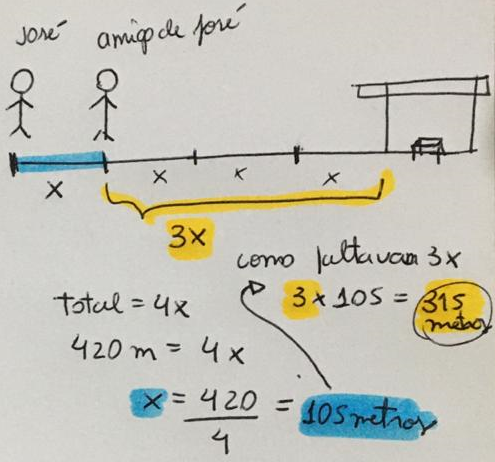 José amigo de José
x x x x
3x
como faltavam 3x
3 x 105 = 315 metros
total = 4x
420 m = 4x
x = 420/4 = 105 metros